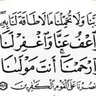 وَلَا تُحَمِّلْنَا مَا لَا طَاقَةَ لَنَا بِهِ
وَٱعْفُ عَنَّا وَٱغْفِرْ لَنَا
وَٱرْحَمْنَا أَنتَ مَوْلَىٰنَا
فَٱنصُرْنَا عَلَى ٱلْقَوْمِ ٱلْكَٰفِرِينَ